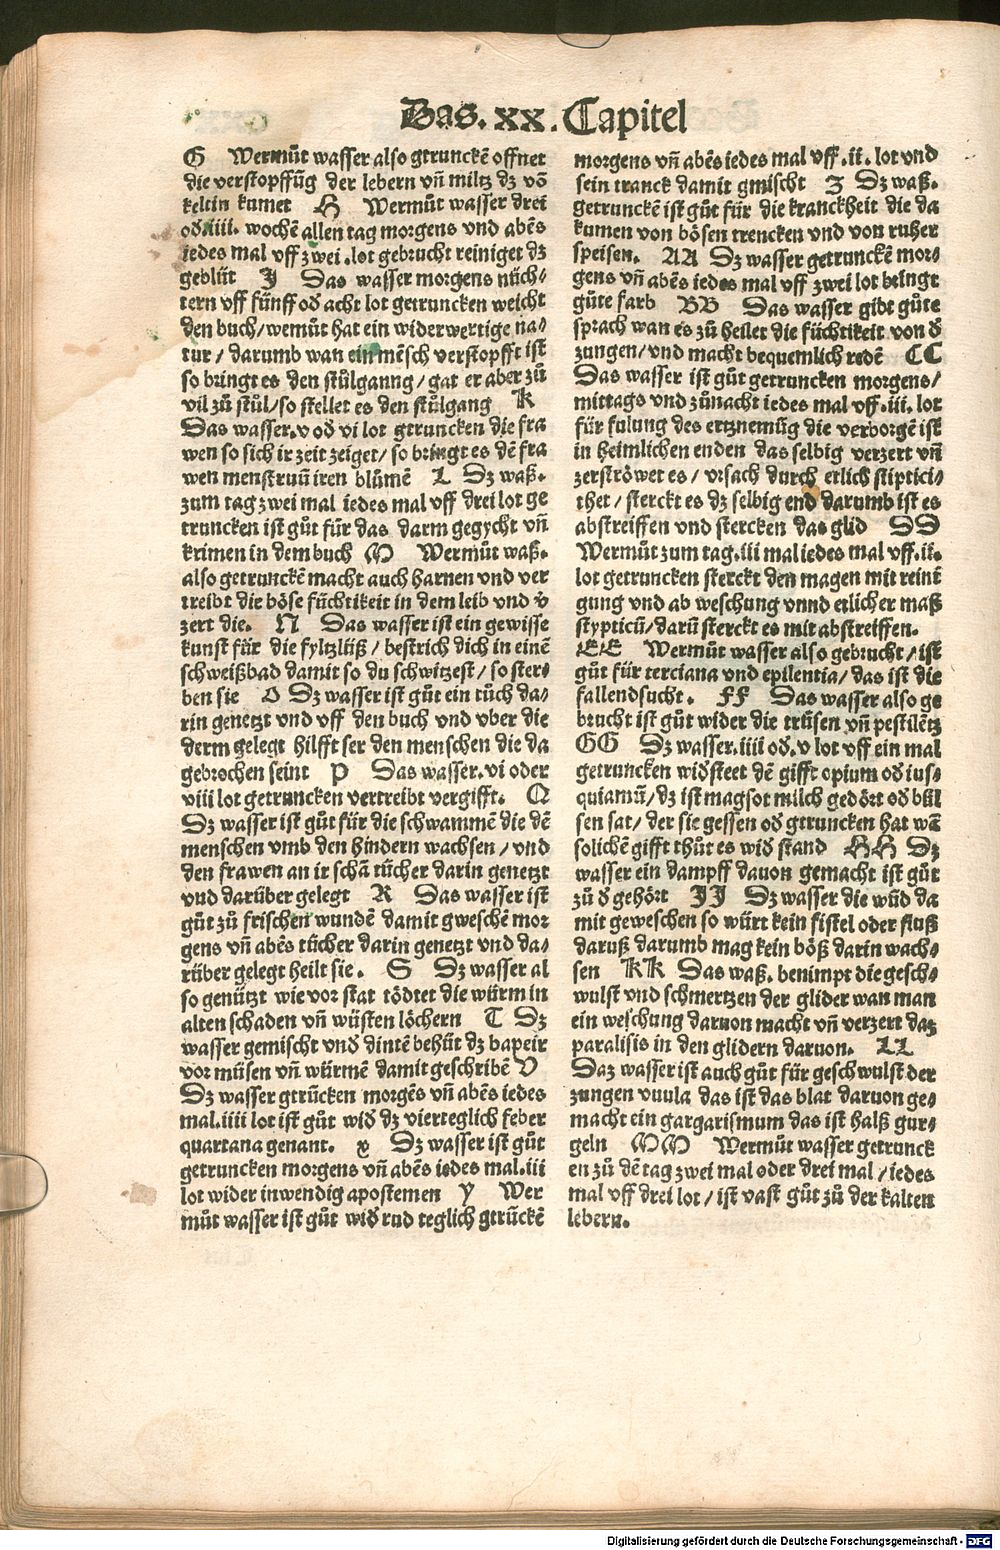 Das. xx. Capitel
G Wermůt wasser also gtrunckē offnet
die verstopffūg der lebern vñ miltz dz vō
keltin kumet H Wermůt wasser drei
od iiii. wochē allen tag morgens vnd abēs
iedes mal vff zwei .lot gebrucht reiniget dz
geblüt J Das wasser morgens nüch⸗
tern vff fünff od acht lot getruncken weicht
den buch/wemůt hat ein widerwertige na⸗
tur / darumb wan ein mēsch verstopfft ist
so bringt es den stůlganng/gat er aber zů
vil zů stůl/so stellet es den stůlgang K
Das wasser.v od vi lot gtruncken die fra
wen so sich ir zeit zeiget/ so bringt es dē fra
wen menstruū iren blůmē L Dz waß.
zum tag zwei mal iedes mal vff drei lot ge
truncken ist gůt für das darm gegycht vñ
krimen in dem buch M Wermůt waß.
also getrunckē macht auch harnen vnd ver
treibt die böse füchtikeit in dem leib vnd v̄
zert die. N Das wasser ist ein gewisse
kunst für die fyltzlüß/ bestrich dich in einē
schweißbad damit so du schwitzest/ so ster⸗
ben sie O Dz wasser ist gůt ein tůch da⸗
rin genetzt vnd vff den buch vnd vber die
derm gelegt hilfft ser den menschen die da
gebrochen seint P Das wasser. vi oder
viii lot getruncken vertreibt vergifft. Q
Dz wasser ist gůt für die schwammē die dē
menschen vmb den hindern wachsen / vnd
den frawen an ir schā tücher darin genetzt
vnd darüber gelegt R Das wasser ist
gůt zů frischen wundē damit gweschē mor
gens vñ abēs tücher darin genetzt vnd da⸗
rüber gelegt heilt sie. S Dz wasser al
so genützt wie vor stat tödtet die würm in
alten schaden vñ wüsten löchern T Dz
wasser gemischt vnd dintē behüt dz bapeir
vor müsen vñ würmē damit geschribē V
Dz wasser gtrūcken morgēs vñ abēs iedes
mal.iiii lot ist gůt wid dz vierteglich feber
quartana genant. x Dz wasser ist gůt
getruncken morgens vñ abēs iedes mal.iii
lot wider inwendig apostemen y Wer
můt wasser ist gůt wid rud teglich gtrūckē
morgens vñ abēs iedes mal vff .ii. lot vnd
sein tranck damit gmischt Z Dz waß.
getrunckē ist gůt für die kranckheit die da
kumen von bösen trencken vnd von ruher
speisen. AA Dz wasser getrunckē mor⸗
gens vñ abēs iedes mal vff zwei lot bringt
gůte farb BB Das wasser gibt gůte
sprach wan es zů heilet die füchtikeit von d
zungen/vnd macht bequemlich redē CC
Das wasser ist gůt getruncken morgens/
mittags vnd zůnacht iedes mal vff.iii. lot
für fulung des ertznemūg die verborgē ist
in heimlichen enden das selbig verzert vñ
zerströwet es / vrsach durch etlich stiptici⸗
thet / sterckt es dz selbig end darumb ist es
abstreiffen vnd stercken das glid DD
Wermůt zum tag.iii mal iedes mal vff.ii.
lot getruncken sterckt den magen mit reini
gung vnd ab weschung vnnd etlicher maß
stypticū/darū sterckt es mit abstreiffen.
EE Wermůt wasser also gebrucht/ist
gůt für terciana vnd epilentia/ das ist die
fallendsucht. FF Das wasser also ge
brucht ist gůt wider die trůsen vñ pestilētz
GG Dz wasser.iiii od.v lot vff ein mal
getruncken widsteet dē gifft opium od ius⸗
quiamū/dz ist magsot milch gedört od bül
sen sat/ der sie gessen od gtruncken hat wā
solichē gifft thůt es wid stand HH Dz
wasser ein dampff dauon gemacht ist gůt
zů d gehört JJ Dz wasser die wūd da
mit geweschen so würt kein fistel oder fluß
daruß darumb mag kein böß darin wach⸗
sen KK Das waß. benimpt die gesch⸗
wulst vnd schmertzen der glider wan man
ein weschung daruon macht vñ verzert daz
paralisis in den glidern daruon. LL
Daz wasser ist auch gůt für geschwulst der
zungen vuula das ist das blat daruon ge⸗
macht ein gargarismum das ist halß gur⸗
geln MM Wermůt wasser getrunck
en zů dē tag zwei mal oder drei mal / iedes
mal vff drei lot / ist vast gůt zů der kalten
lebern.
Digitalisierung gefördert durch die Deutsche Forschungsgemeinschaft - DFG